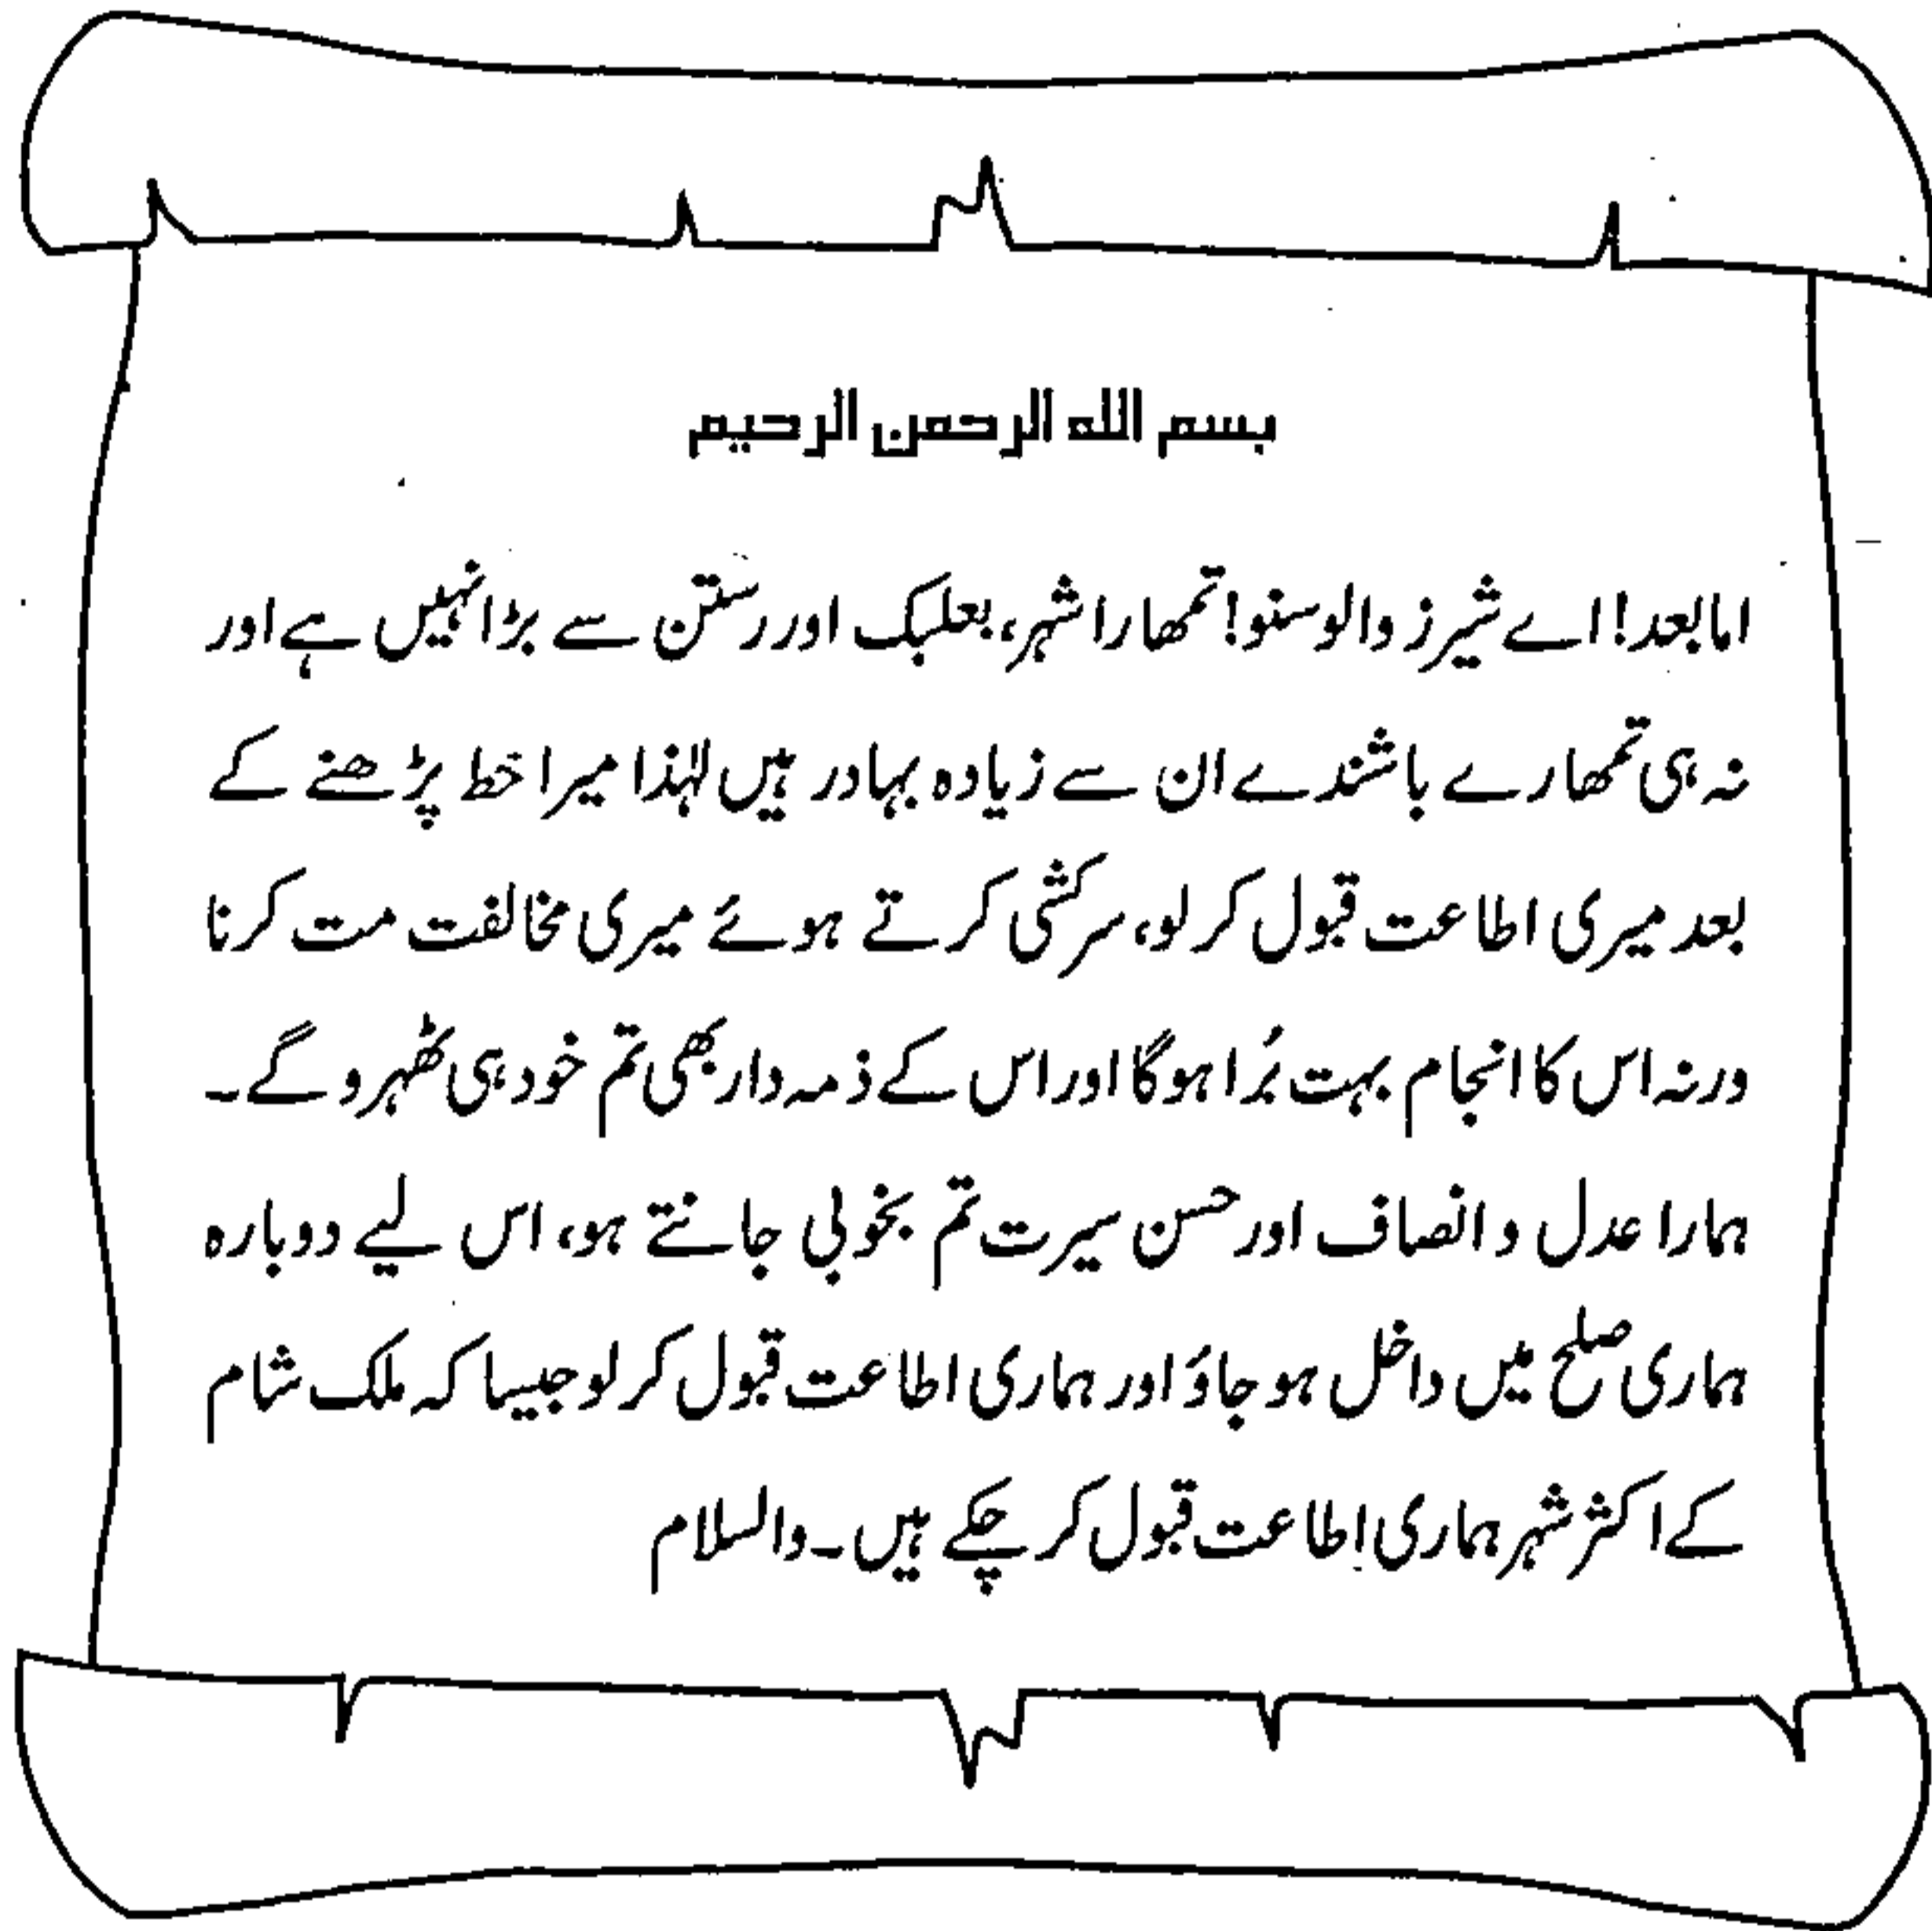 بسم الله الرحمن الرحيم
اما بعد! اے شیرز والو سنو! تمھارا شہر، بعلبک اور رستن سے بڑا نہیں ہے اور
نہ ہی تمھارے باشندے ان سے زیادہ بہادر ہیں لہٰذا میرا خط پڑھنے کے
بعد میری اطاعت قبول کر لو، سرکشی کرتے ہوئے میری مخالفت مت کرنا
ورنہ اس کا انجام بہت بُرا ہوگا اور اس کے ذمہ دار بھی تم خود ہی ٹھہرو گے۔
ہمارا عدل و انصاف اور حسن سیرت تم بخوبی جانتے ہو، اس لیے دوبارہ
ہماری صلح میں داخل ہو جاؤ اور ہماری اطاعت قبول کر لو جیسا کہ ملک شام
کے اکثر شہر ہماری اطاعت قبول کر چکے ہیں۔ والسلام